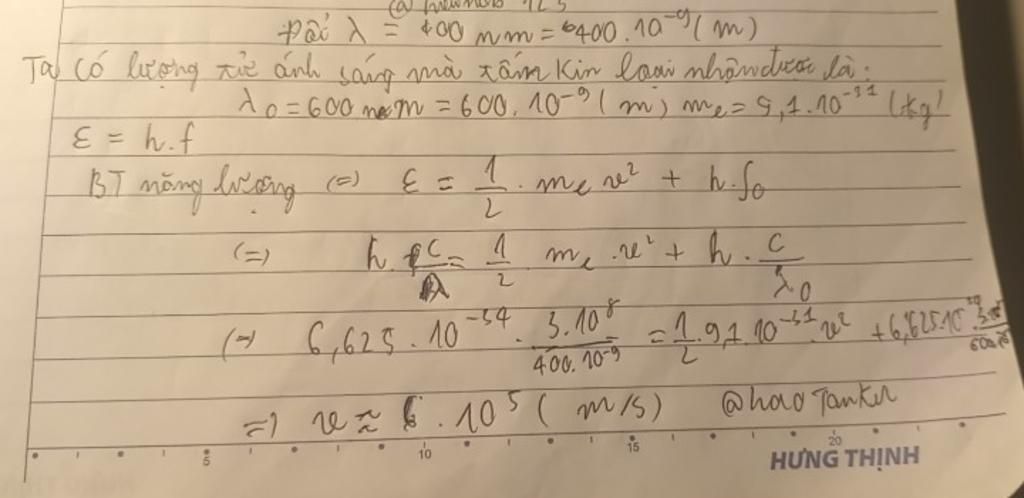 Đổi λ = 400 nm = 400.10⁻⁹ (m)
Ta có lượng tử ánh sáng mà tấm kim loại nhận được là:
λ₀ = 600 nm = 600.10⁻⁹ (m) mₑ = 9,1.10⁻³¹ (kg)
ε = h.f
BT năng lượng (=) ε = 1/2 . mₑ v² + h.f₀
(=) h. c/λ = 1/2 mₑ . v² + h . c/λ₀
(=) 6,625 . 10⁻³⁴ . 3.10⁸/400.10⁻⁹ = 1/2 . 9,1.10⁻³¹ . v² + 6,625.10
=) v ≈ 6 . 10⁵ ( m/s) @haoTanker
5 10 15 20
HƯNG THỊNH